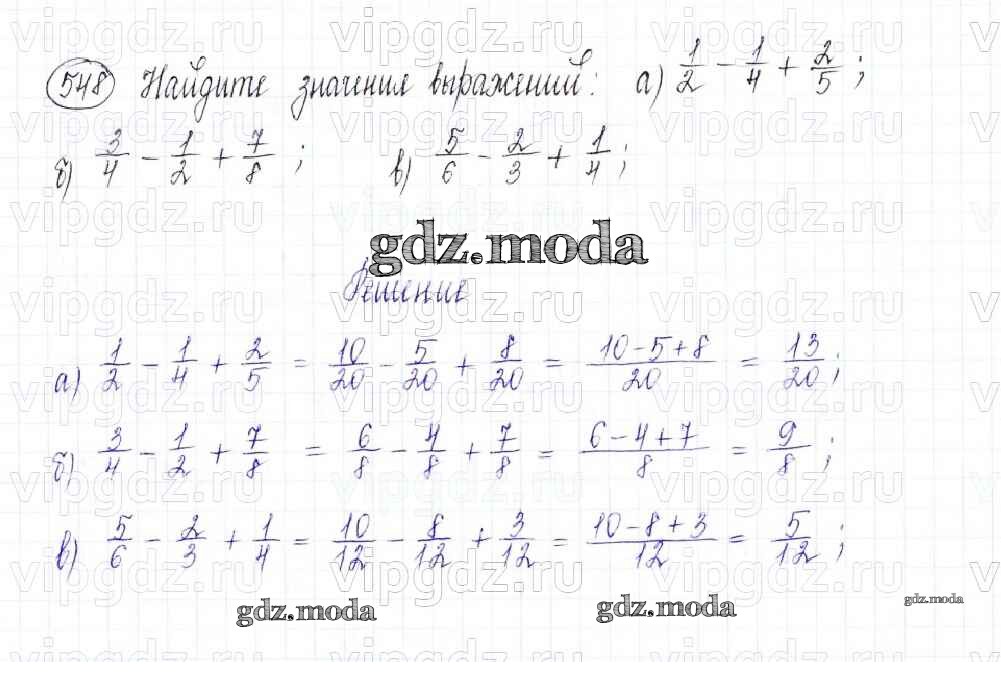 548 Найдите значения выражений: а) 1/2 - 1/4 + 2/5;
б) 3/4 - 1/2 + 7/8; в) 5/6 - 2/3 + 1/4;
gdz.moda
Решение
а) 1/2 - 1/4 + 2/5 = 10/20 - 5/20 + 8/20 = (10-5+8)/20 = 13/20;
б) 3/4 - 1/2 + 7/8 = 6/8 - 4/8 + 7/8 = (6-4+7)/8 = 9/8;
в) 5/6 - 2/3 + 1/4 = 10/12 - 8/12 + 3/12 = (10-8+3)/12 = 5/12;
gdz.moda gdz.moda gdz.moda
vipgdz.ru